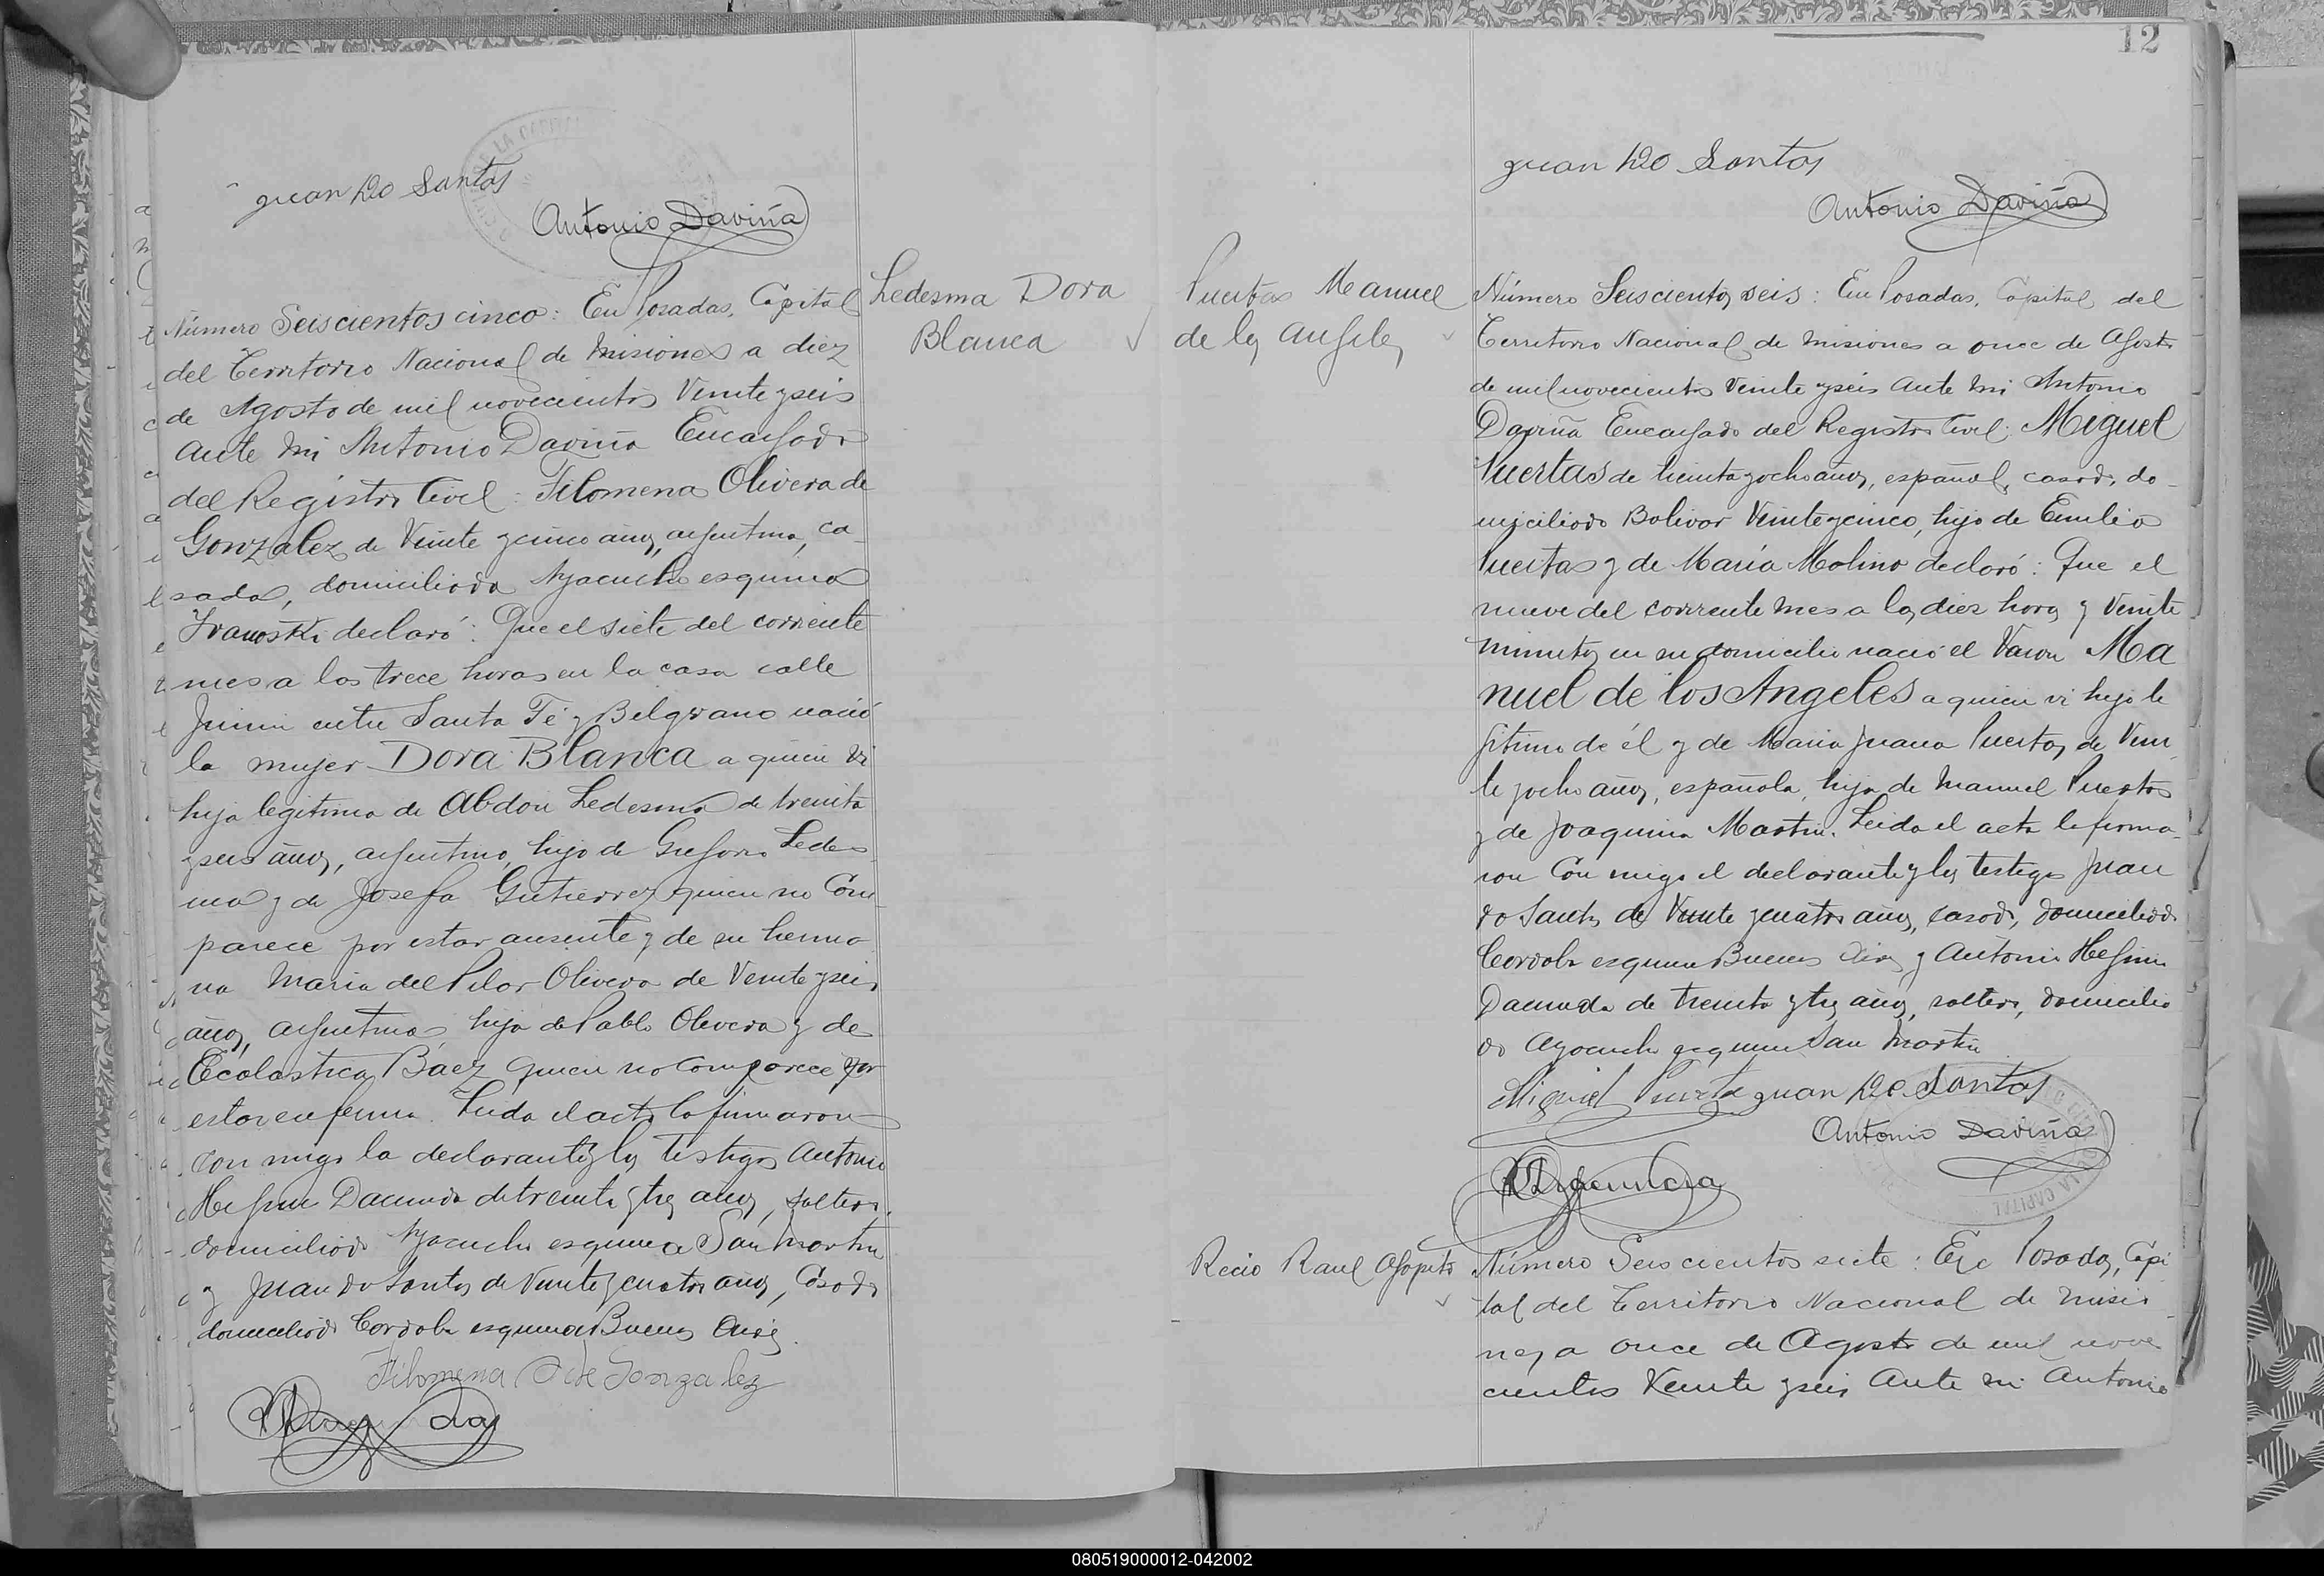 Juan Do Santos
Antonio Daviña
Número Seiscientos cinco: En Posadas, Capital
del Territorio Nacional de Misiones a diez
de Agosto de mil novecientos Veinte y seis
ante mi Antonio Daviña Encargado
del Registro Civil: Filomena Olivera de
Gonzalez de Veinte y cinco años, argentina, ca-
sada, domiciliada Ayacucho esquina
Ivanoski declaró: Que el siete del corriente
mes a las trece horas en la casa calle
Junin entre Santa Fé y Belgrano nació
la mujer Dora Blanca a quien vi
hija legitima de Abdon Ledesma de treinta
y seis años, argentino, hijo de Gregorio Ledes-
ma y de Josefa Gutierrez quien no Com-
parece por estar ausente y de su herma-
na Maria del Pilar Olivera de Veinte y seis
años, argentina, hija de Pablo Olivera y de
Ecolastica Báez quien no comparece por
estar enferma. Leida el acta la firmaron
con migo la declarante y los testigos Antonio
Dacunda de treinta y tres años, soltero,
domiciliado Ayacucho esquina San Martin
y Juan do Santos de Veinte y cuatro años, Casado
domiciliado Cordoba esquina Buenos Aires.
Filomena O de Gonzalez
Ledesma Dora
Blanca
12
Juan Do Santos
Antonio Daviña
Puertas Manuel
de los Angeles
Número Seiscientos seis: En Posadas, Capital del
Territorio Nacional de Misiones a once de Agosto
de mil novecientos Veinte y seis ante mi Antonio
Daviña Encargado del Registro Civil: Miguel
Puertas de treinta y ocho años, español, casado, do-
miciliado Bolivar Veinte y cinco, hijo de Emilio
Puertas y de María Molino declaró: Que el
nueve del corriente mes a las diez horas y Veinte
minutos en su domicilio nació el Varon Ma
nuel de los Angeles a quien vi hijo le
gitimo de él y de Maria Juana Puertas de Vein-
te y ocho años, española, hija de Manuel Puertas
y de Joaquina Martin. Leida el acta la firma-
ron Con migo el declarante y los testigos Juan
do Santos de Veinte y cuatro años, casado, domiciliado
Cordoba esquina Buenos Aires y Antonio
Dacunda de treinta y tres años, soltero, domicilia
do Ayacucho esquina San Martin
Miguel Puerta Juan Do Santos
Antonio Daviña
Recio Raul Agapito
Número Seiscientos siete: En Posadas, Capi
tal del Territorio Nacional de Misio-
nes a once de Agosto de mil nove
cientos Veinte y seis Ante mi Antonio
080519000012-042002